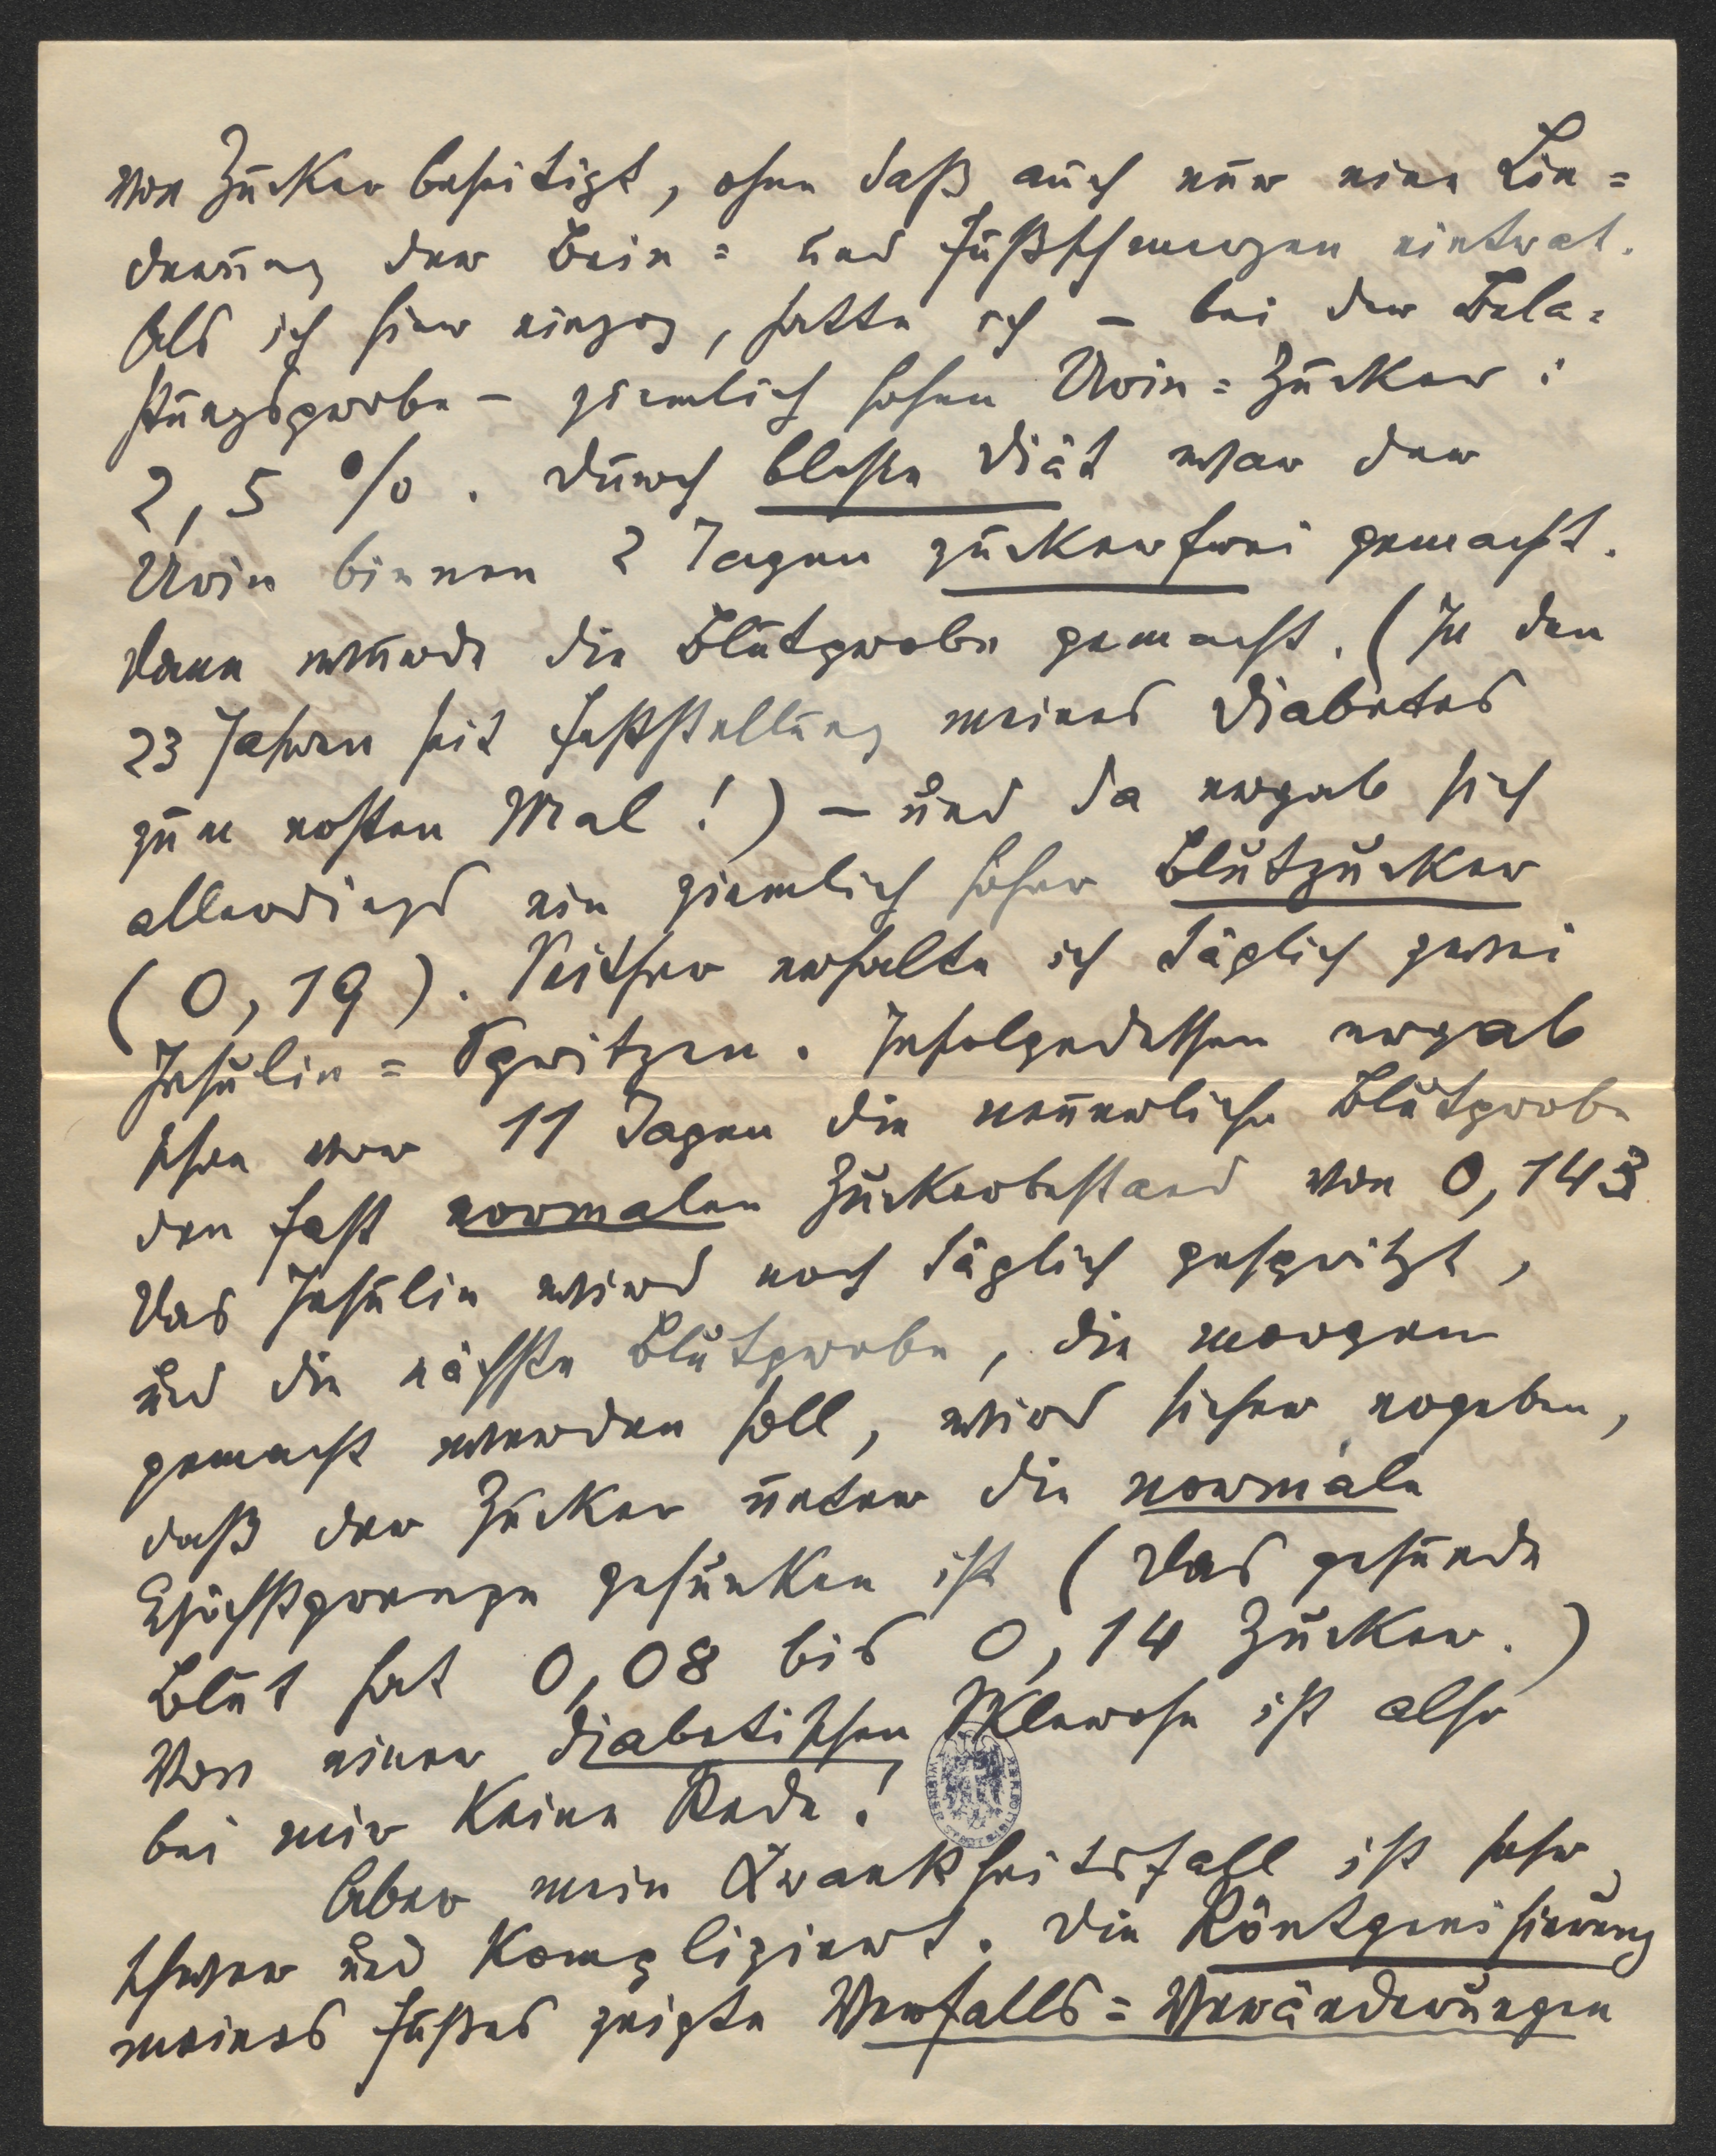 von Zucker beseitigt, ohne daß auch nur eine Lin=
derung der Bein= und Fußschmerzen eintrat.
Als ich hier einzog, hatte ich – bei der Bela=
stungsprobe – ziemlich hohen Urin=Zucker:
2,5 %. Durch bloße Diät war der
Urin binnen 2 Tagen zuckerfrei gemacht.
Dann wurde die Blutprobe gemacht. (In den
23 Jahren seit Feststellung meines Diabetes
zum ersten Mal!) – und da ergab sich
allerdings ein ziemlich hoher Blutzucker
(0,19). Seither erhalte ich täglich zwei
Insulin=Spritzen. Infolgedessen ergab
schon vor 11 Tagen die neuerliche Blutprobe
den fast normalen Zuckerbestand von 0,143
Das Insulin wird noch täglich gespritzt,
und die nächste Blutprobe, die morgen
gemacht werden soll, wird sicher ergeben,
daß der Zucker unter die normale
Höchstgrenze gesunken ist (Das gesunde
Blut hat 0,08 bis 0,14 Zucker.)
Von einer diabetischen Sklerose ist also
bei mir keine Rede!
Aber mein Krankheitsfall ist sehr
schwer und kompliziert. Die Röntgenisierung
meines Fußes zeigte Verfalls=Veränderungen